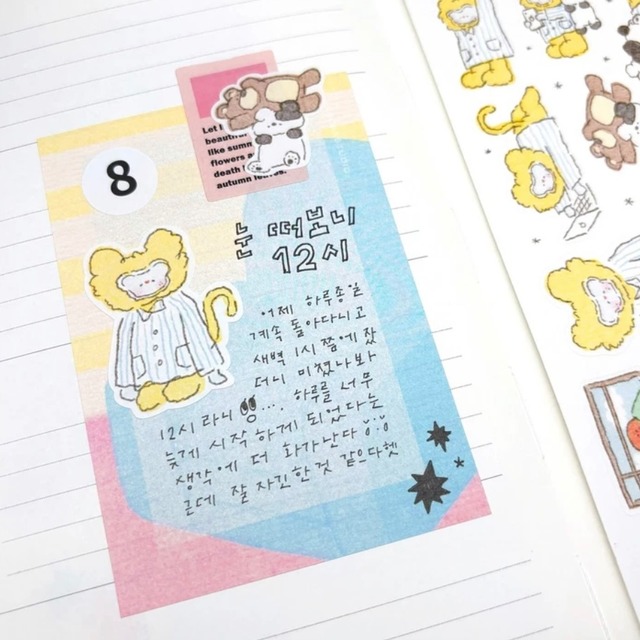 Let
beautiful
like summ
flowers a
death
autumn leaves.
8
눈 떠보니
12시
어제 하루종일
계속 돌아다니고
새벽 1시 쯤에 잤
더니 미쳤나봐
12시 라니 .... 하루를 너무
늦게 시작하게 되었다는
생각에 더 화가난다
근데 잘 자긴한것 같은다헷